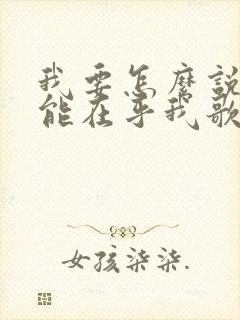 我要怎麼說
能在乎我歌
女孩柒柒.